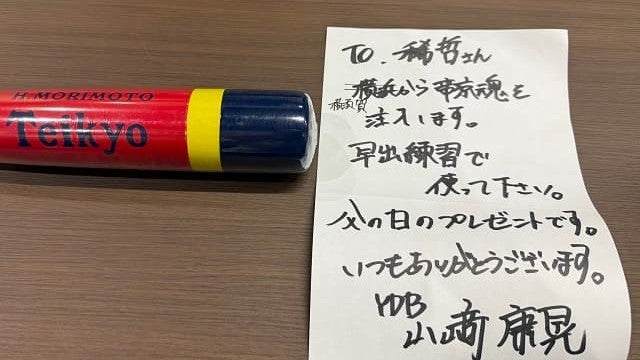 H.MORIMOTO
Teikyo
TO. 稀哲さん
横浜から帝京魂を
横須賀
注入します。
早出練習で
使って下さい。
父の日のプレゼントです。
いつもありがとうございます。
YDB
山﨑 康晃